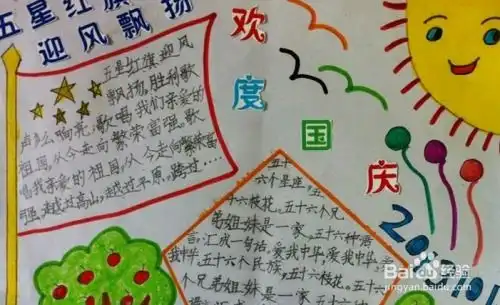 五星红旗
迎风飘扬
欢
度
国
庆
五星红旗迎风
飘扬,胜利歌
声多么响亮,歌唱我们亲爱的
祖国,从今走向繁荣富强,歌
唱我亲爱的祖国,从今走向繁荣富
强,越过高山,越过平原,跨过....
五十
六个星座,五
十六枝花。五十六个兄
弟姐妹是一家,五十六种语
言,汇成一句话,爱我中华,爱
我中华,五十六个民族,五十六枝花。五十六
个兄弟姐妹是一家,五十六种
Baidu经验
jingyan.baidu.com